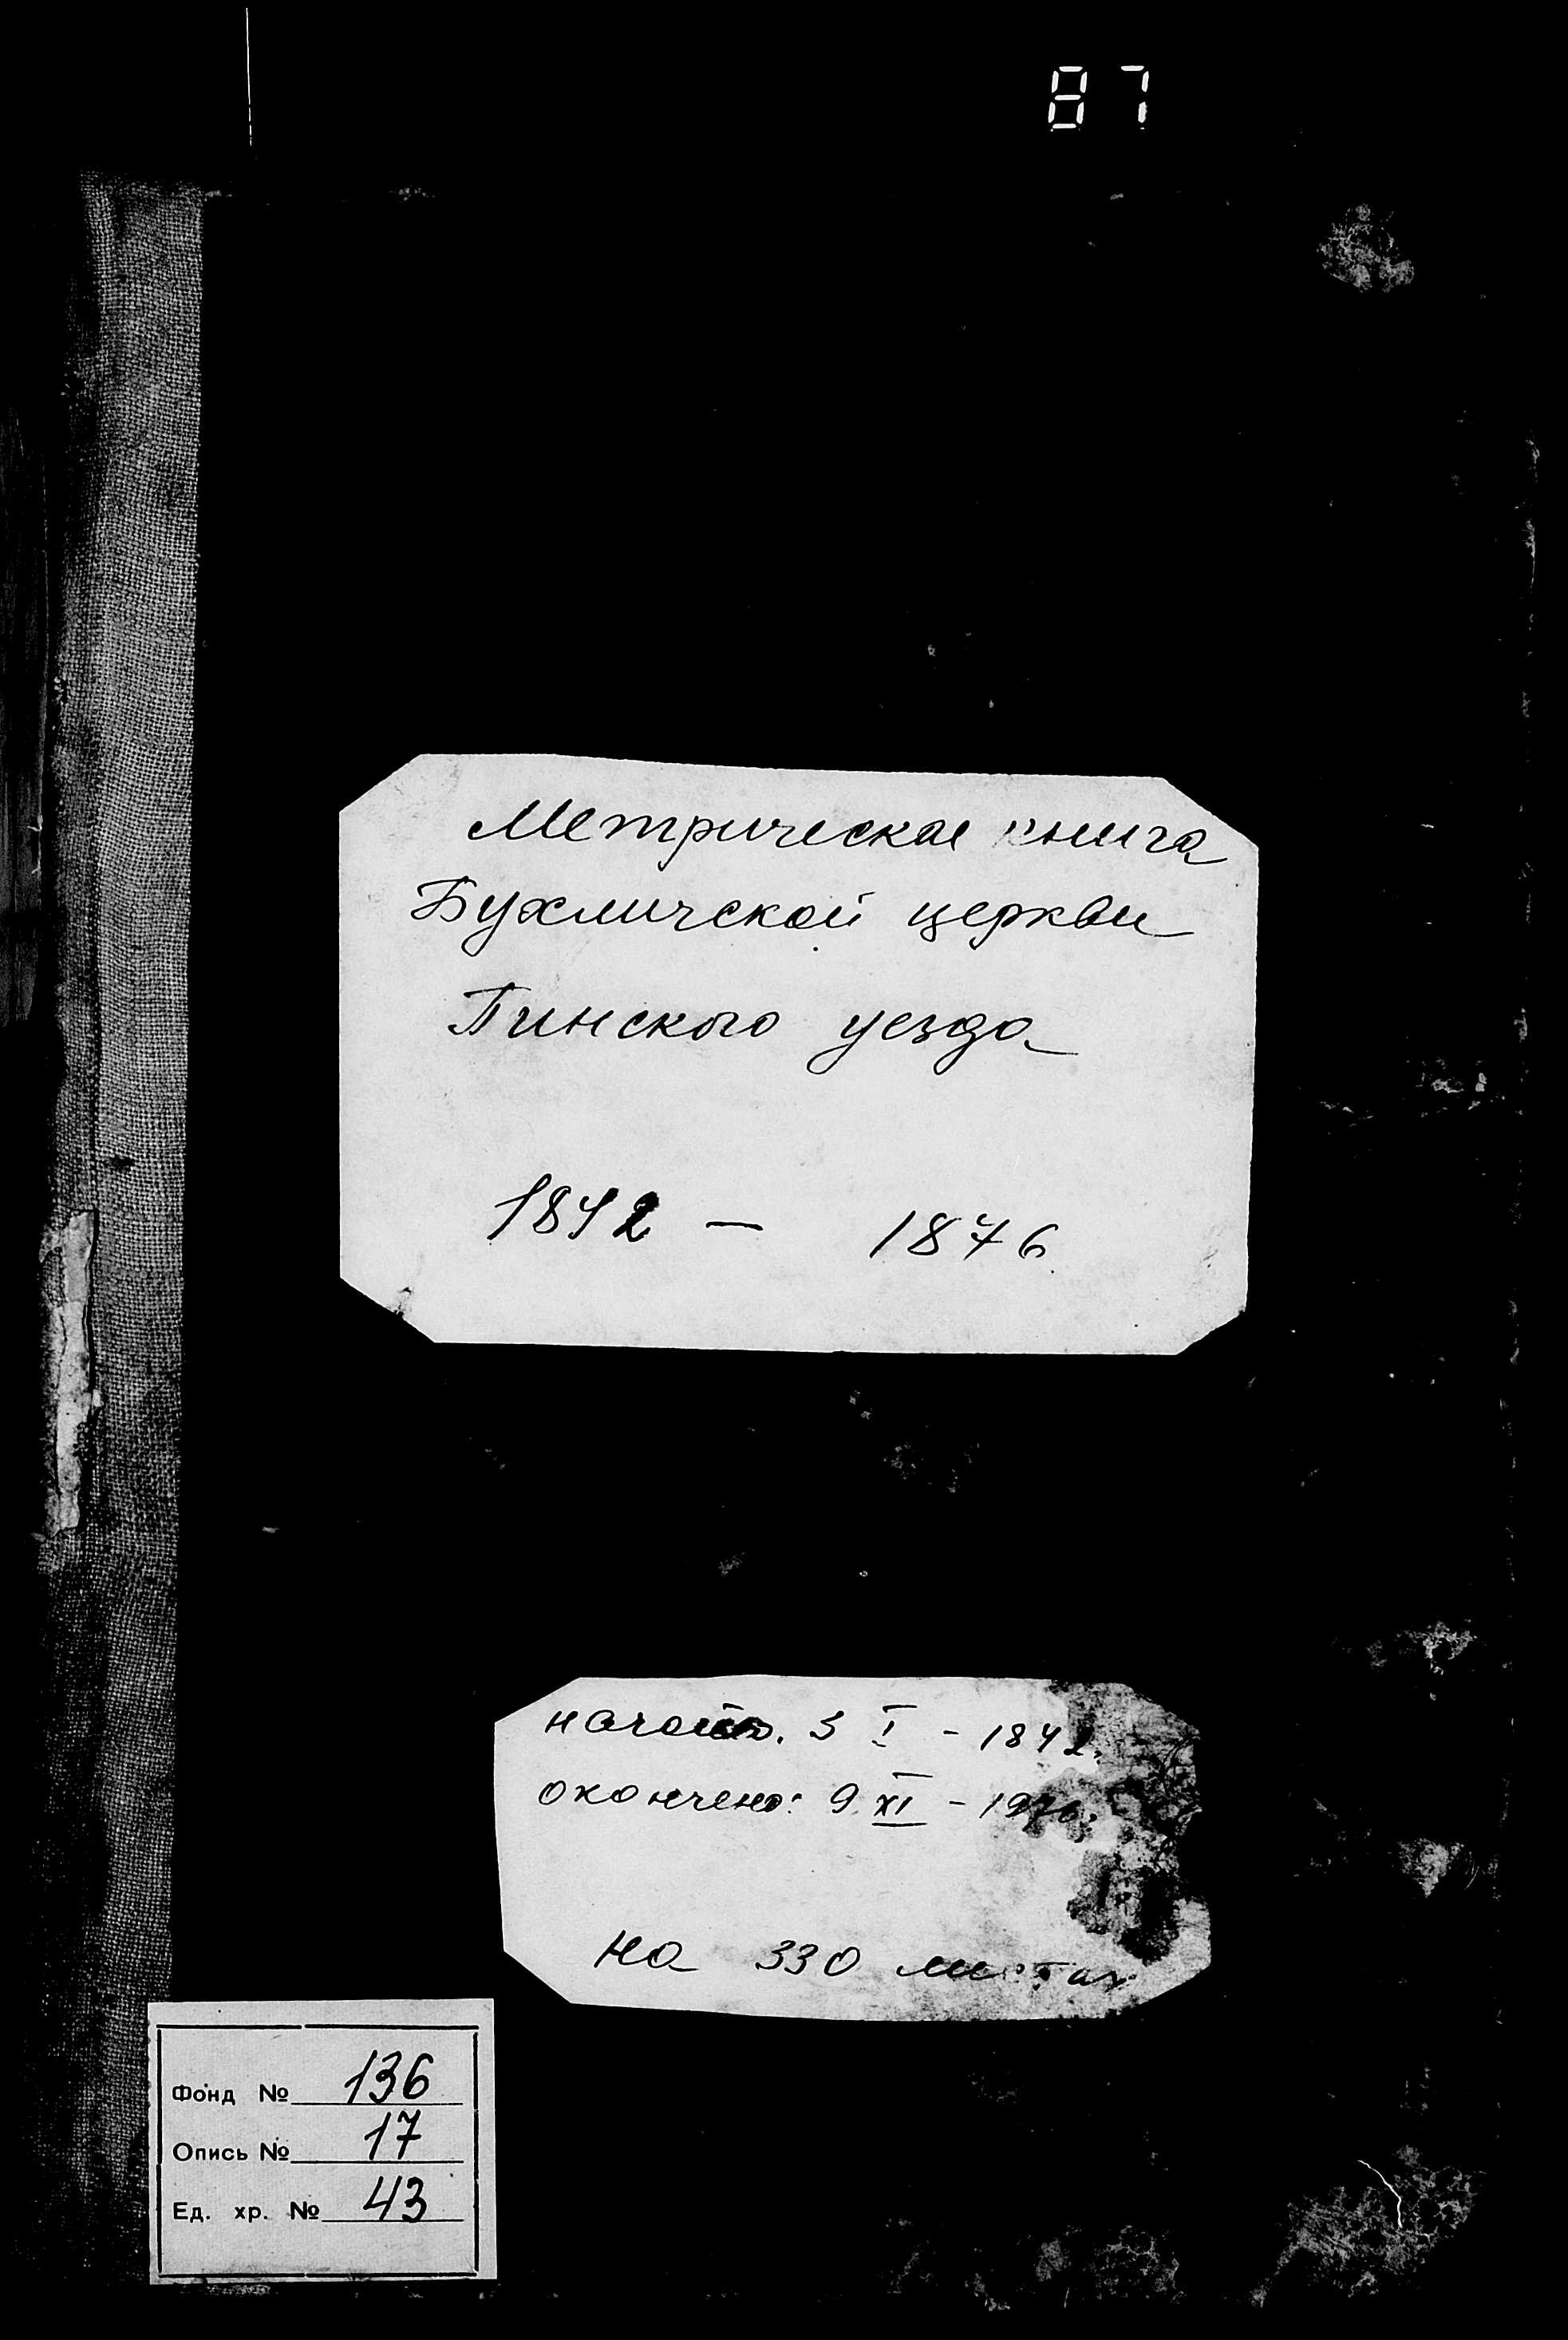 87
Метрическая книга
Бухличской церкви
Пинского уезда
1842 — 1876
3 I - 1842.
окончено: 9 XI -
на 330 листах
Фонд № 136
Опись № 17
Ед. хр. № 43